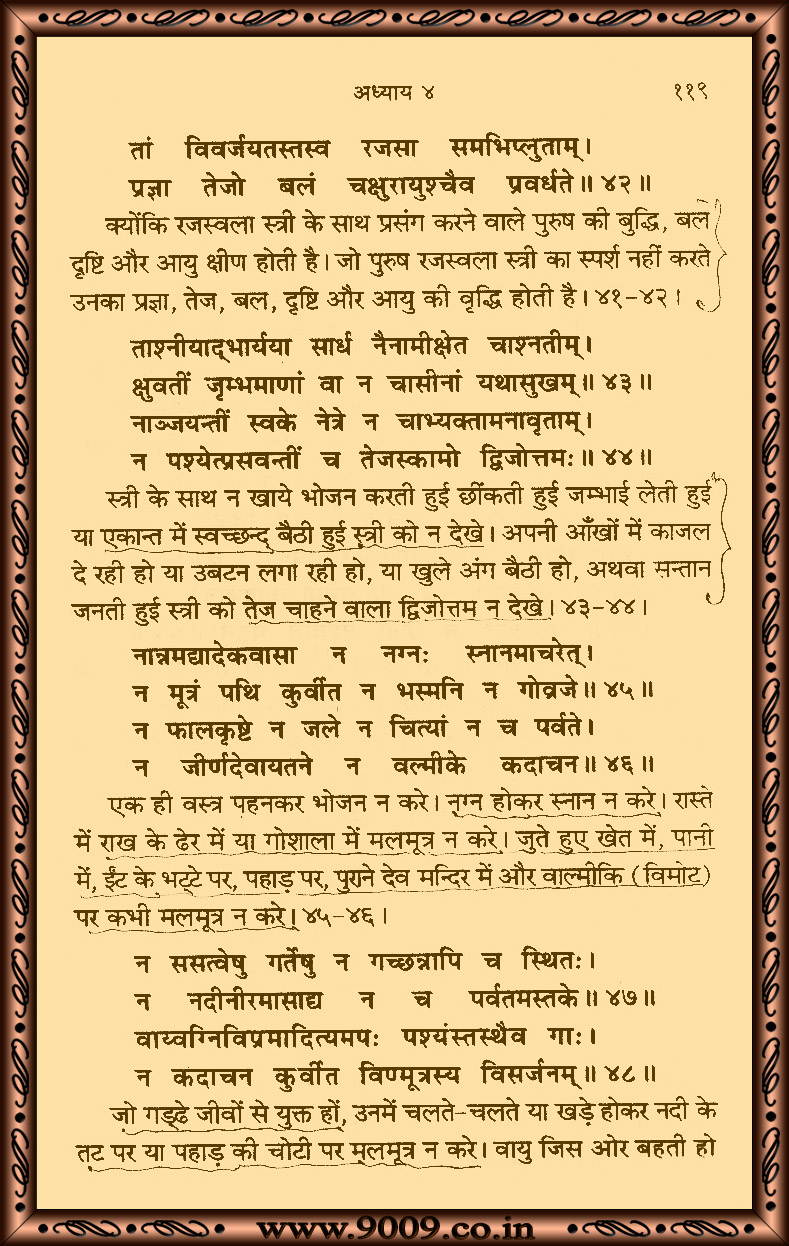 अध्याय ४ ११९
तां विवर्जयतस्तस्व रजसा समभिप्लुताम्।
प्रज्ञा तेजो बलं चक्षुरायुश्चैव प्रवर्धते॥ ४२॥
क्योंकि रजस्वला स्त्री के साथ प्रसंग करने वाले पुरुष की बुद्धि, बल
दृष्टि और आयु क्षीण होती है। जो पुरुष रजस्वला स्त्री का स्पर्श नहीं करते
उनका प्रज्ञा, तेज, बल, दृष्टि और आयु की वृद्धि होती है। ४१-४२।
ताश्नीयाद्भार्यया सार्ध नैनामीक्षेत चाश्नतीम्।
क्षुवतीं जृम्भमाणां वा न चासीनां यथासुखम्॥ ४३॥
नाञ्जयन्तीं स्वके नेत्रे न चाभ्यक्तामनावृताम्।
न पश्येत्प्रसवन्तीं च तेजस्कामो द्विजोत्तमः॥ ४४॥
स्त्री के साथ न खाये भोजन करती हुई छींकती हुई जम्भाई लेती हुई
या एकान्त में स्वच्छन्द् बैठी हुई स्त्री को न देखे। अपनी आँखों में काजल
दे रही हो या उबटन लगा रही हो, या खुले अंग बैठी हो, अथवा सन्तान
जनती हुई स्त्री को तेज चाहने वाला द्विजोत्तम न देखे। ४३-४४।
नान्नमद्यादेकवासा न नग्नः स्नानमाचरेत्।
न मूत्रं पथि कुर्वीत न भस्मनि न गोव्रजे॥ ४५॥
न फालकृष्टे न जले न चित्यां न च पर्वते।
न जीर्णदेवायतने न वल्मीके कदाचन॥ ४६॥
एक ही वस्त्र पहनकर भोजन न करे। नग्न होकर स्नान न करे। रास्ते
में राख के ढेर में या गोशाला में मलमूत्र न करे। जुते हुए खेत में, पानी
में, ईंट के भट्टे पर, पहाड़ पर, पुराने देव मन्दिर में और वाल्मीकि (विमोट)
पर कभी मलमूत्र न करे। ४५-४६।
न ससत्वेषु गर्तेषु न गच्छन्नापि च स्थितः।
न नदीनीरमासाद्य न च पर्वतमस्तके॥ ४७॥
वाय्वग्निविप्रमादित्यमपः पश्यंस्तस्थैव गाः।
न कदाचन कुर्वीत विण्मूत्रस्य विसर्जनम्॥ ४८॥
जो गड्ढे जीवों से युक्त हों, उनमें चलते-चलते या खड़े होकर नदी के
तट पर या पहाड़ की चोटी पर मलमूत्र न करे। वायु जिस ओर बहती हो
www.9009.co.in